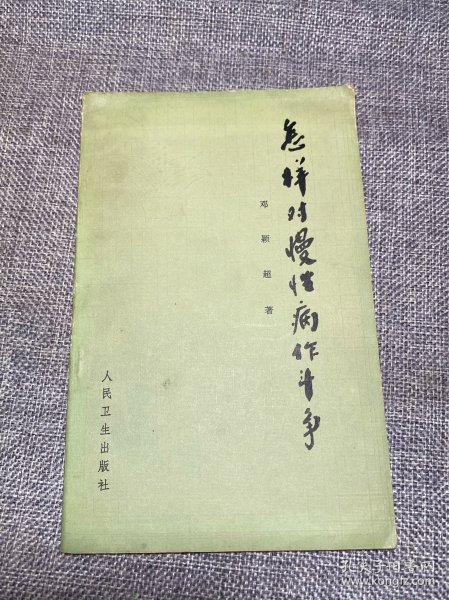 怎样对慢性病作斗争
邓颖超著
人民卫生出版社
孔夫子旧书网